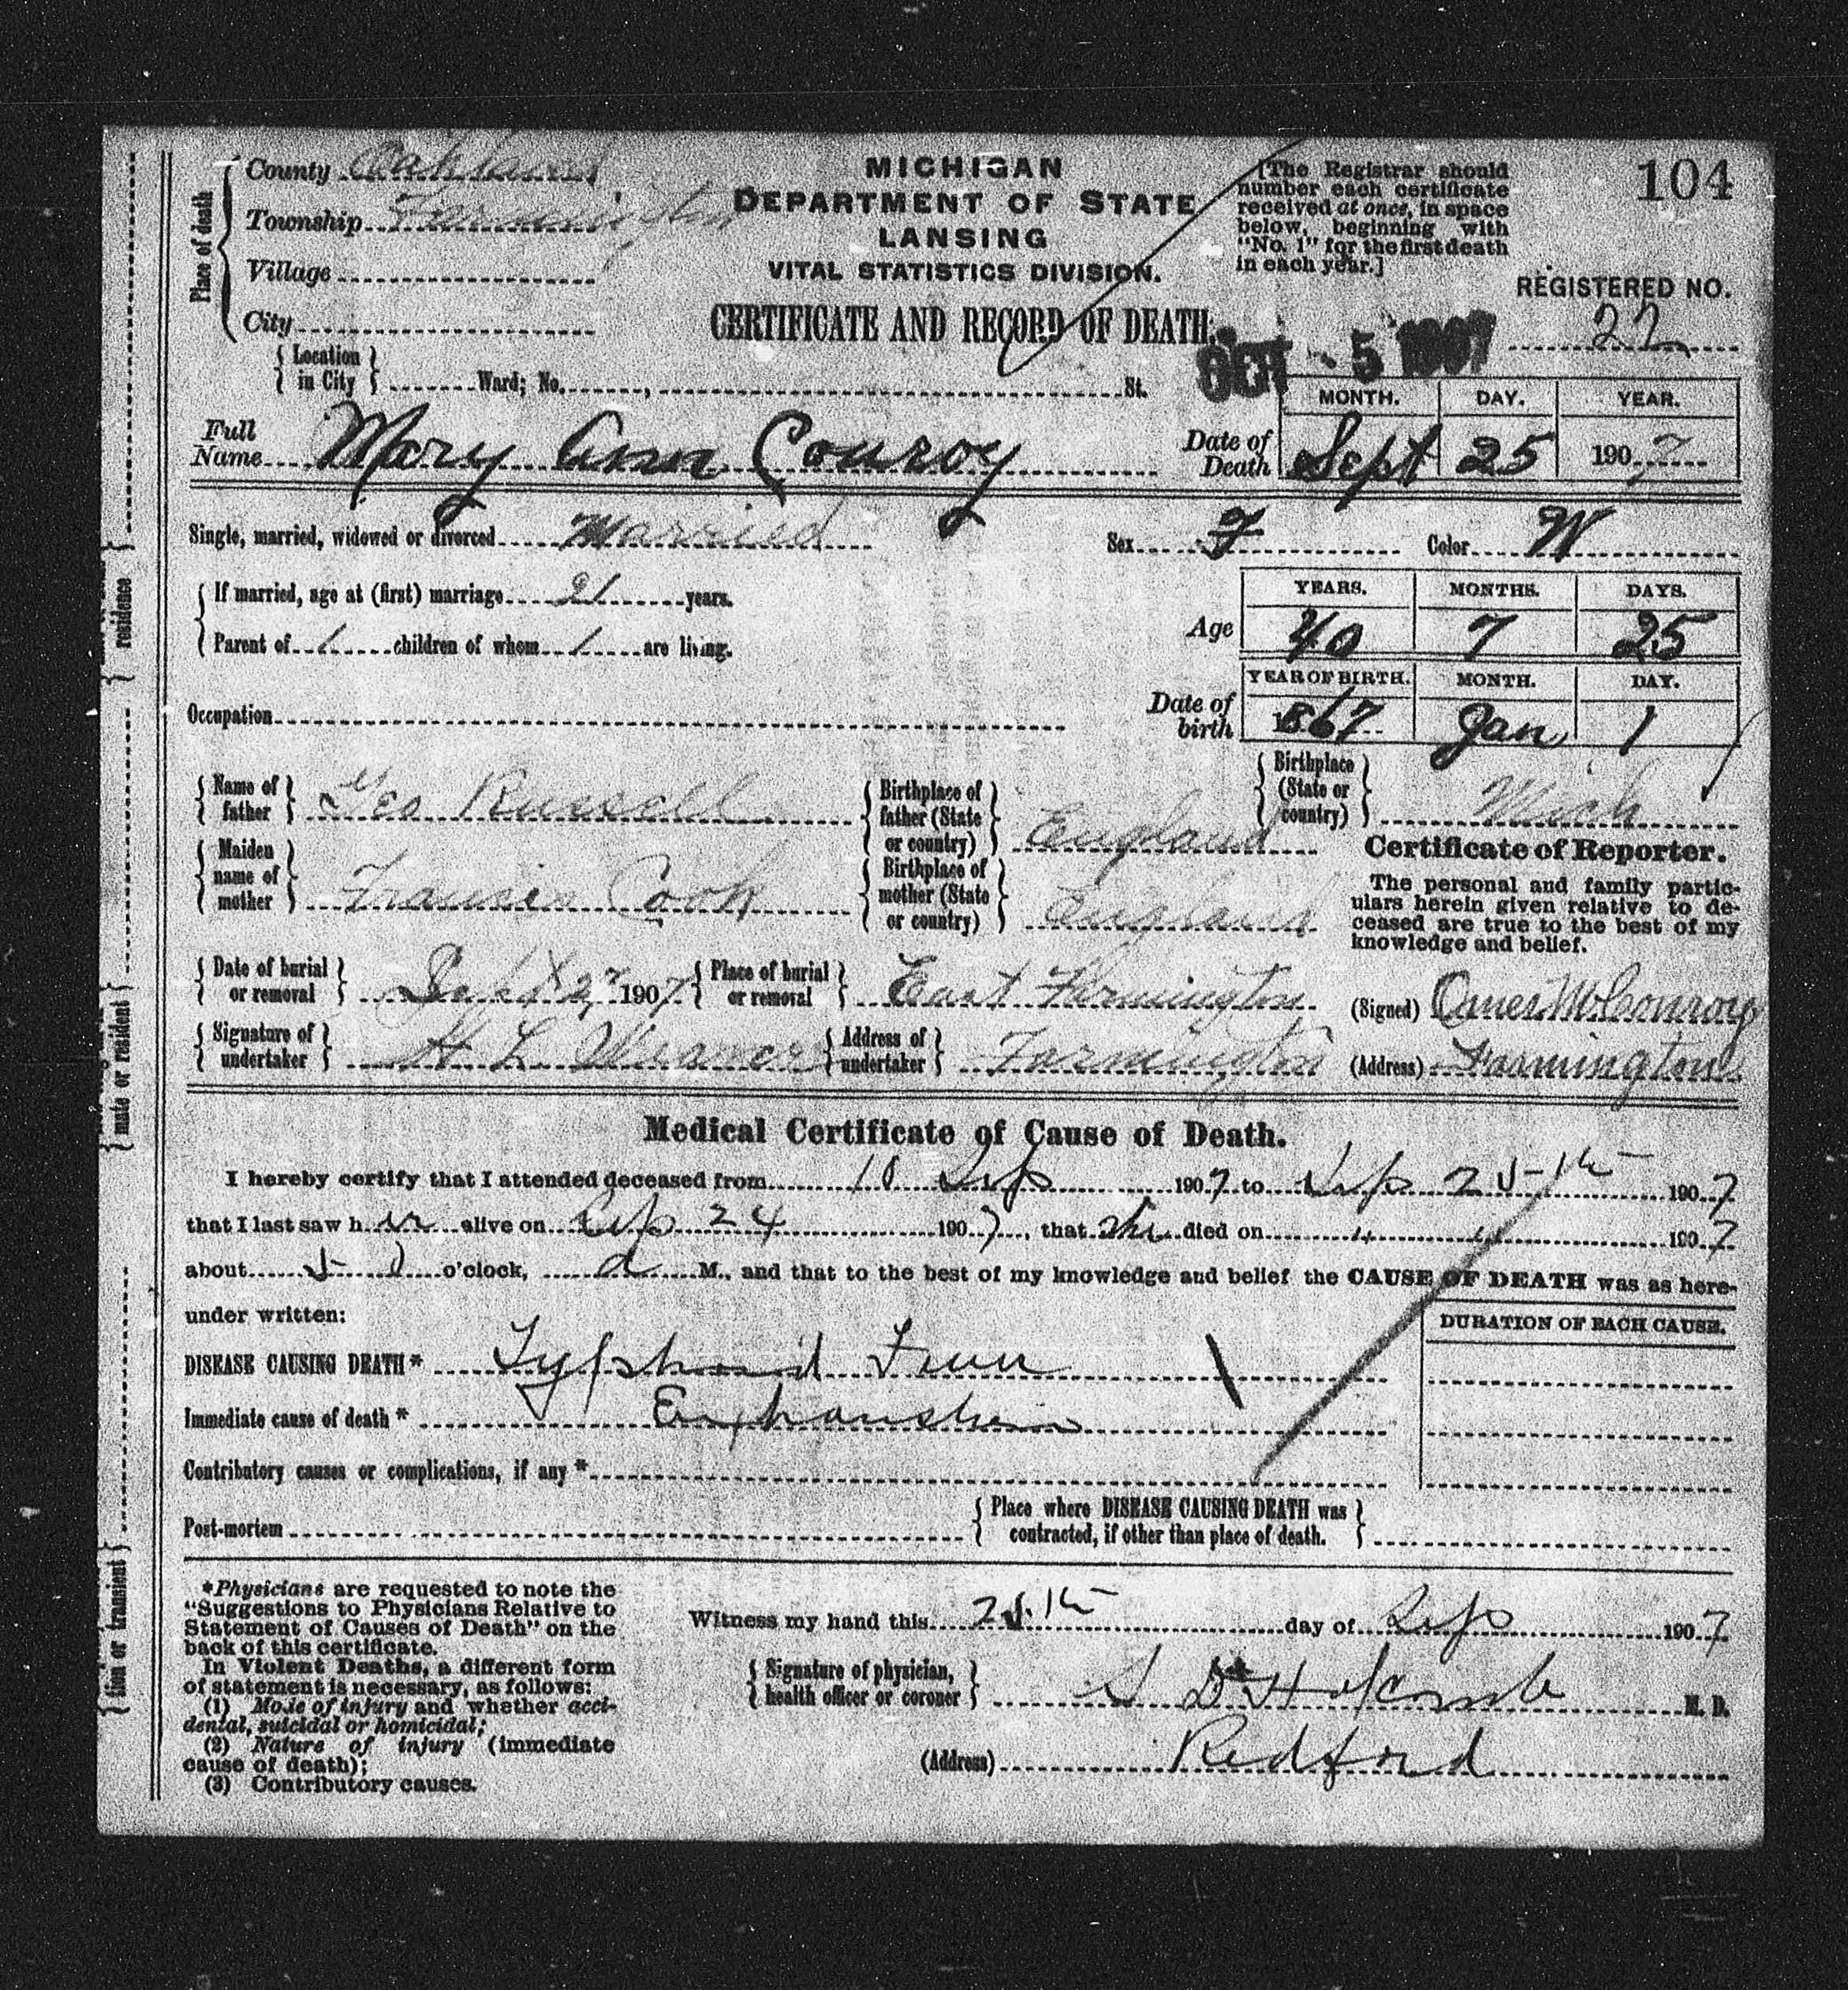 104
County Oakland
Township Farmington
Village
City
Place of death
MICHIGAN
DEPARTMENT OF STATE
LANSING
VITAL STATISTICS DIVISION.
CERTIFICATE AND RECORD OF DEATH.
[The Registrar should
number each certificate
received at once, in space
below, beginning with
"No. 1" for the first death
in each year.]
REGISTERED NO.
22
OCT - 5 1907
Location in City Ward; No. , St.
Full Name Mary Ann Conroy
Date of Death
MONTH. DAY. YEAR.
Sept 25 1907
Single, married, widowed or divorced Married Sex F Color W
If married, age at (first) marriage 21 years.
Parent of 1 children of whom 1 are living.
Age
YEARS. MONTHS. DAYS.
40 7 25
Occupation
Date of birth
YEAR OF BIRTH. MONTH. DAY.
1867 Jan 1
Birthplace (State or country) Mich
Name of father Geo Russell
Birthplace of father (State or country) England
Maiden name of mother Cook
Birthplace of mother (State or country) England
Certificate of Reporter.
The personal and family partic-
ulars herein given relative to de-
ceased are true to the best of my
knowledge and belief.
Date of burial or removal Sept 27 1907 Place of burial or removal East Farmington
(Signed) McConroy
Signature of undertaker H L Address of undertaker Farmington
(Address) Farmington
Medical Certificate of Cause of Death.
I hereby certify that I attended deceased from 10 Sep 1907 to Sep 25th 1907
that I last saw her alive on Sep 24 1907, that she died on " " 1907
about 5 o'clock, a M., and that to the best of my knowledge and belief the CAUSE OF DEATH was as here-
under written:
DURATION OF EACH CAUSE.
DISEASE CAUSING DEATH* Typhoid Fever
Immediate cause of death * Exhaustion
Contributory causes or complications, if any *
Post-mortem
Place where DISEASE CAUSING DEATH was
contracted, if other than place of death.
*Physicians are requested to note the
"Suggestions to Physicians Relative to
Statement of Causes of Death" on the
back of this certificate.
In Violent Deaths, a different form
of statement is necessary, as follows:
(1) Mode of injury and whether acci-
dental, suicidal or homicidal;
(2) Nature of injury (immediate
cause of death);
(3) Contributory causes.
Witness my hand this 25th day of Sep 1907
Signature of physician, health officer or coroner Holcomb M. D.
(Address) Redford
residence
mate or resident
tion or transient